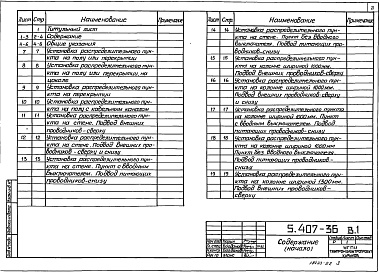 Лист Стр. Наименование Примечание
1 Титульный лист
1-3 2-4 Содержание
4-6 Общие указания
7 7 Установка распределительного пун-
кта на полу или перекрытии
8 8 Установка распределительного пун-
кта на полу или перекрытии на
цоколе
9 9 Установка распределительного пун-
кта на перекрытии
10 10 Установка распределительного пун-
кта на полу с кабельным каналом
11 11 Установка распределительного пун-
кта на стене. Подвод внешних
проводников - сверху
12 12 Установка распределительного пун-
кта на стене. Подвод внешних про-
водников - сверху и снизу
13 13 Установка распределительного пун-
кта на стене. Пункт с вводным
выключателем. Подвод питающих
проводников-снизу
Лист Стр. Наименование Примечание
14 14 Установка распределительного пун-
кта на стене. Пункт без вводного
выключателя. Подвод питающих про-
водников-снизу
15 15 Установка распределительного пункта
на колонне шириной 600мм.
Подвод внешних проводников-сверху
16 16 Установка распределительного пункта
на колонне шириной 600мм.
Подвод внешних проводников сверху
и снизу
17 17 Установка распределительного пункта
на колонне шириной 600мм. Пункт
с вводным выключателем. Подвод
питающих проводников-снизу
18 18 Установка распределительного пункта
на колонне шириной 1000мм
Пункт без вводного выключателя.
Подвод питающих проводников -
снизу
19 19 Установка распределительного пункта
на колонне шириной 1300мм.
Подвод внешних проводников -
сверху
5.407-36 В.1
Содержание
(начало)